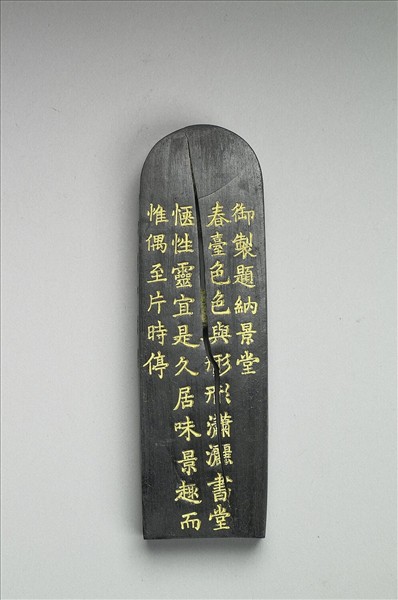 御製題納景堂
春臺色色與形形瀟灑書堂
愜性靈宜是久居味景趣而
惟偶至片時停